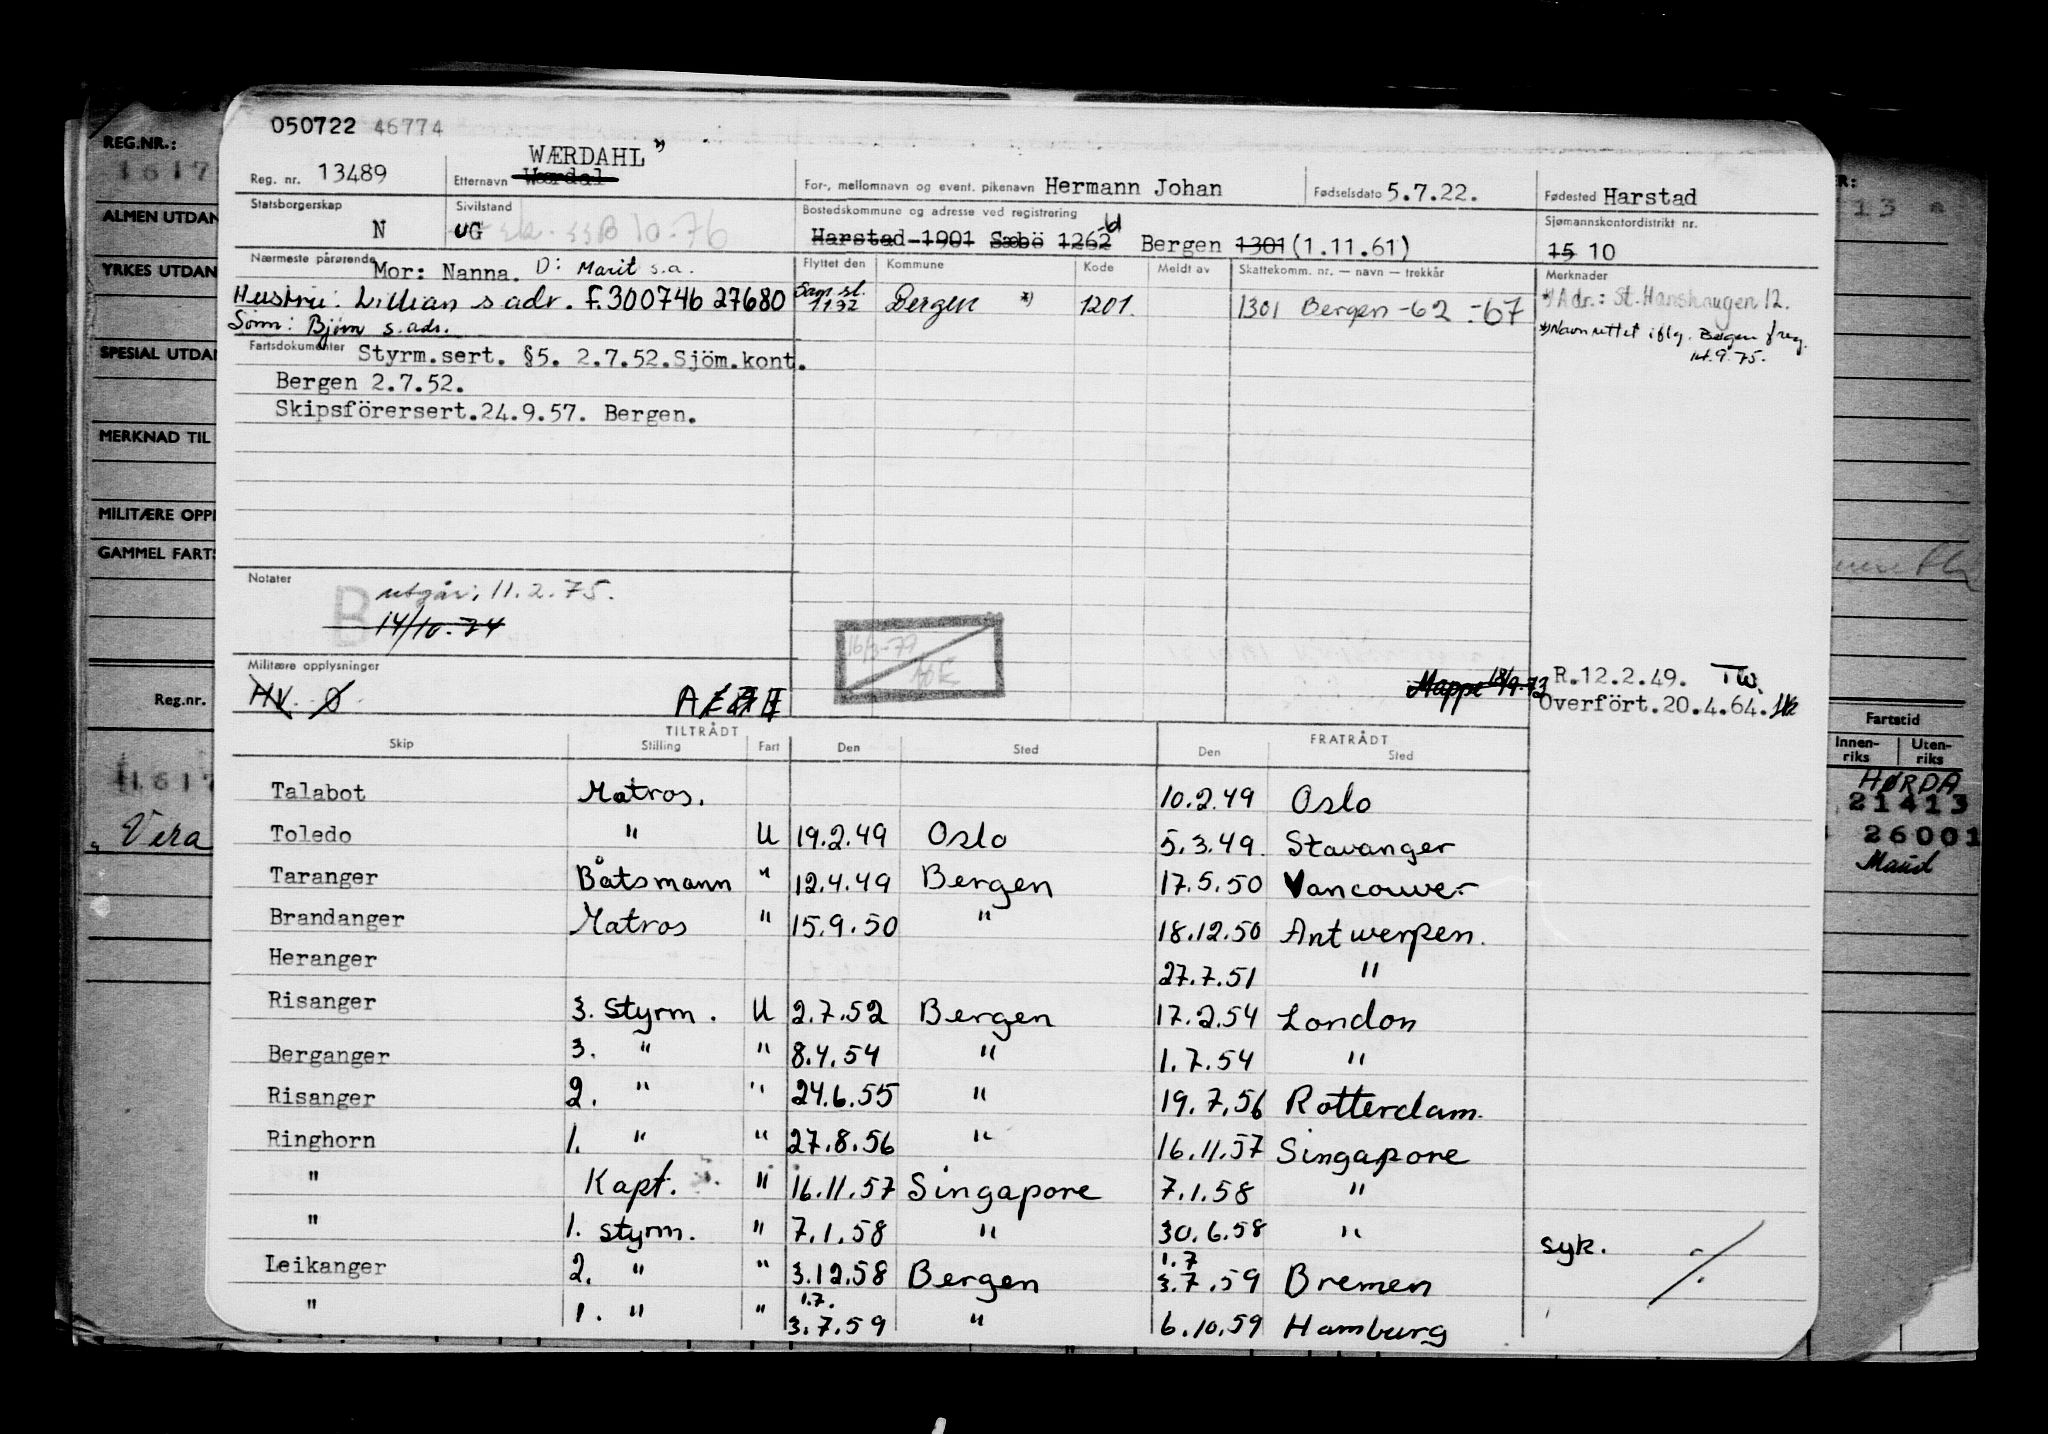 050722 46774
WÆRDAHL *)
Reg. nr. 13489 Etternavn Wærdal For-, mellomnavn og event. pikenavn Hermann Johan Fødselsdato 5.7.22. Fødested Harstad
Statsborgerskap N Sivilstand UG Bostedskommune og adresse ved registrering Harstad 1901 Sæbö 1262 Bergen 1301 (1.11.61) Sjømannskontordistrikt nr. 15 10
Nærmeste pårørende Mor: Nanna. D: Marit s.a. Flyttet den Kommune Kode Meldt av Skattekomm. nr. — navn — trekkår Merknader
Hustru: Lillian s adr. F. 300746 27680 Bergen *) 1201. 1301 Bergen -62 -67 *) Adr.: St. Hanshaugen 12.
Sønn: Bjørn s. adr. *) Navn rettet iflg. Bergen freg.
9.75.
Fartsdokumenter Styrm.sert. §5. 2.7.52.Sjöm.kont.
Bergen 2.7.52.
Skipsförersert.24.9.57. Bergen.
Notater B utgår, 11.2.75.
14/10-74
16/3-79
Militære opplysninger
HV. Ø A
Mappe 18/9-73 R.12.2.49. TW.
Overfört.20.4.64.
TILTRÅDT FRATRÅDT
Skip Stilling Fart Den Sted Den Sted
Talabot Matros. 10.2.49 Oslo
Toledo " U 19.2.49 Oslo 5.3.49. Stavanger
Taranger Båtsmann " 12.4.49 Bergen 17.5.50 Vancouver
Brandanger Matros " 15.9.50 " 18.12.50 Antwerpen.
Heranger 27.7.51 "
Risanger 3. Styrm. U 2.7.52 Bergen 17.2.54 London
Berganger 3. " " 8.4.54 " 1.7.54 "
Risanger 2. " " 24.6.55 " 19.7.56 Rotterdam.
Ringhorn 1. " " 27.8.56 " 16.11.57 Singapore
" Kapt. " 16.11.57 Singapore 7.1.58 "
" 1. styrm. " 7.1.58 " 30.6.58 " syk. ·/.
Leikanger 2. " " 3.12.58 Bergen 1.7 3.7.59 Bremen
" 1. " " 1.7. 3.7.59 " 6.10.59 Hamburg
REG.NR.:
1617
ALMEN UTDAN
YRKES UTDAN
SPESIAL UTDAN
MERKNAD TIL
MILITÆRE OPPI
GAMMEL FARTS
Reg.nr.
1617
"Vera
R:
13
Fartstid
Innen-riks Uten-riks
HØRDA
21413
26001
Maud